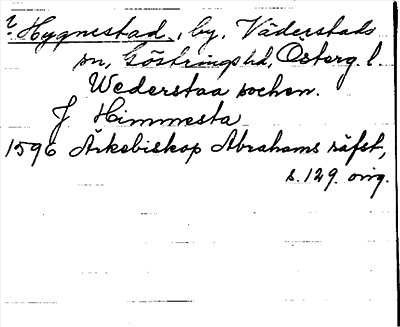 ? Hygnestad, by. Väderstads
sn, Göstrings hd, Österg. l.
Wederstaa sochen.
J Himmesta
1596 Ärkebiskop Abrahams räfst,
s. 129. orig.